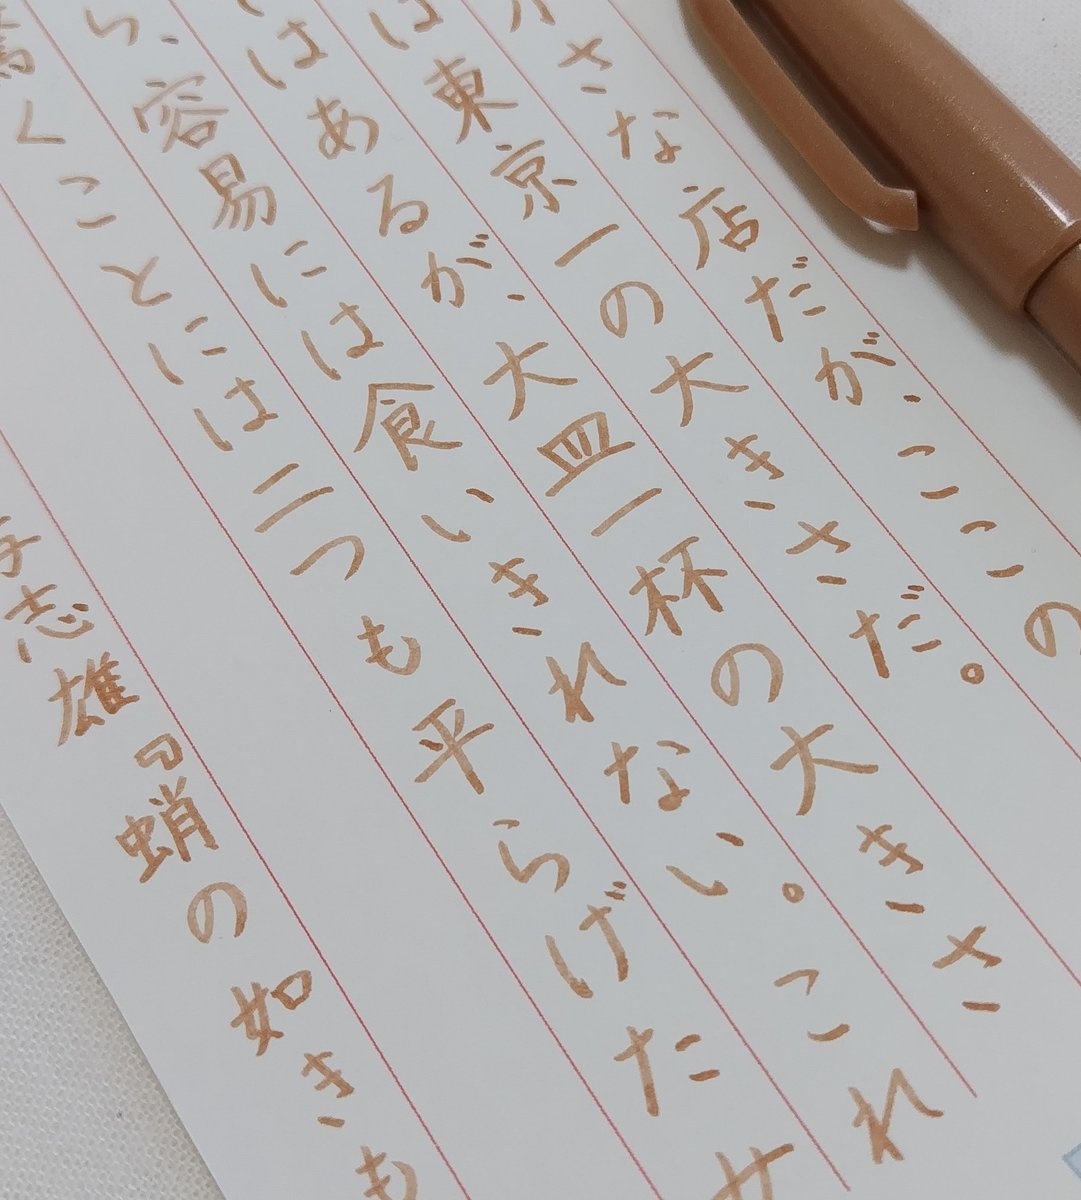 さな店だが、ここの
は東京一の大きさだ。
はあるが、大皿一杯の大きさ
ら、容易には食いきれない。これ
驚くことには三つも平らげた
志雄『蛸の如きも